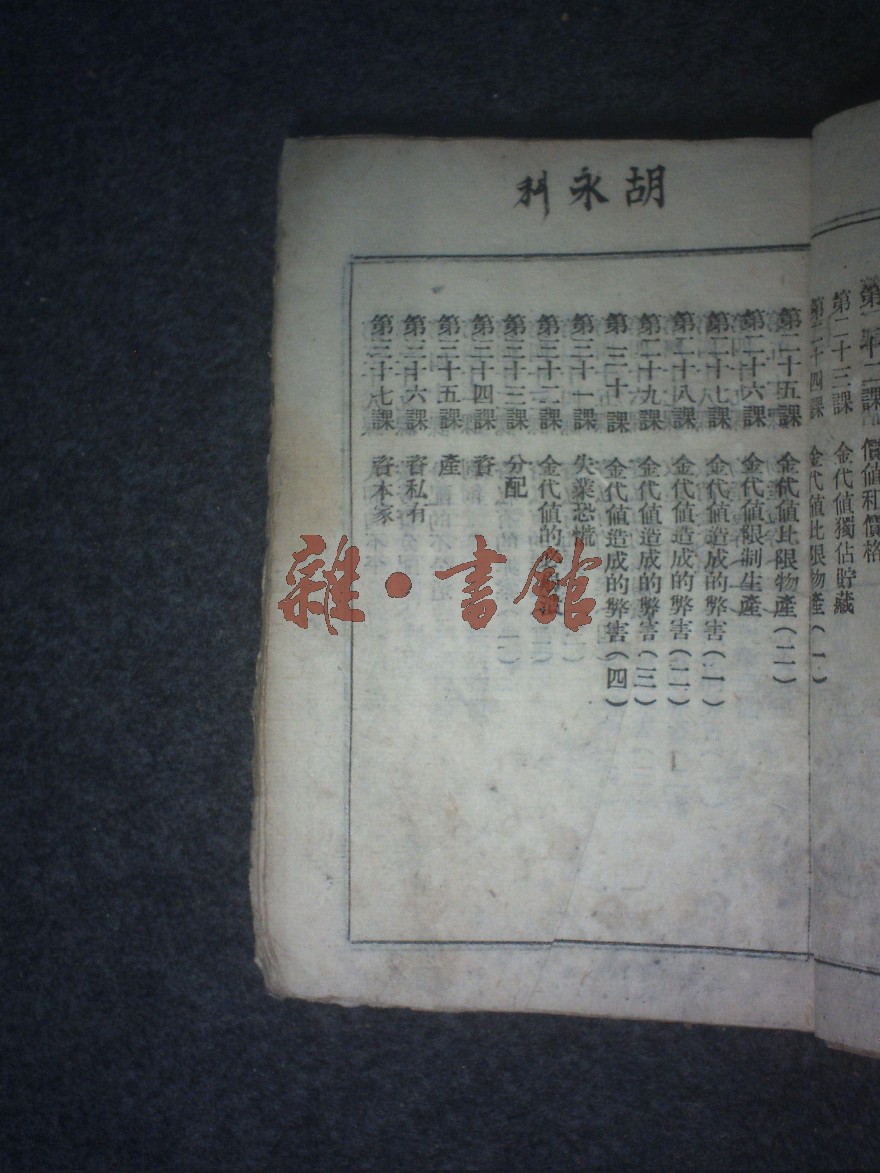 胡永科
第二十二課 價值和價格
第二十三課 金代値獨佔貯藏
第二十四課 金代値比限物產(一)
第二十五課 金代値比限物產(二)
第二十六課 金代値限制生產
第二十七課 金代値造成的弊害(一)
第二十八課 金代値造成的弊害(二)
第二十九課 金代値造成的弊害(三)
第三十課 金代値造成的弊害(四)
第三十一課 失業恐慌
第三十二課 金代値的
第三十三課 分配
第三十四課 資
第三十五課 產
第三十六課 資私有
第三十七課 資本家
雜·書館